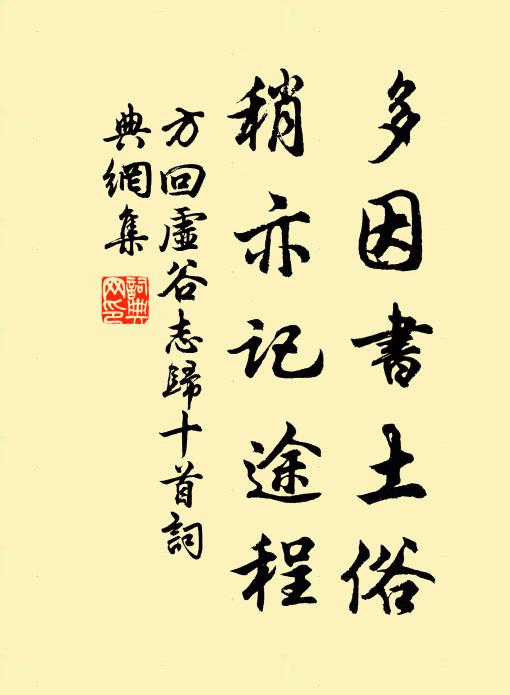 多因書土俗
稍亦記途程
方回虛谷志歸十首詞
典網集
詞典网印